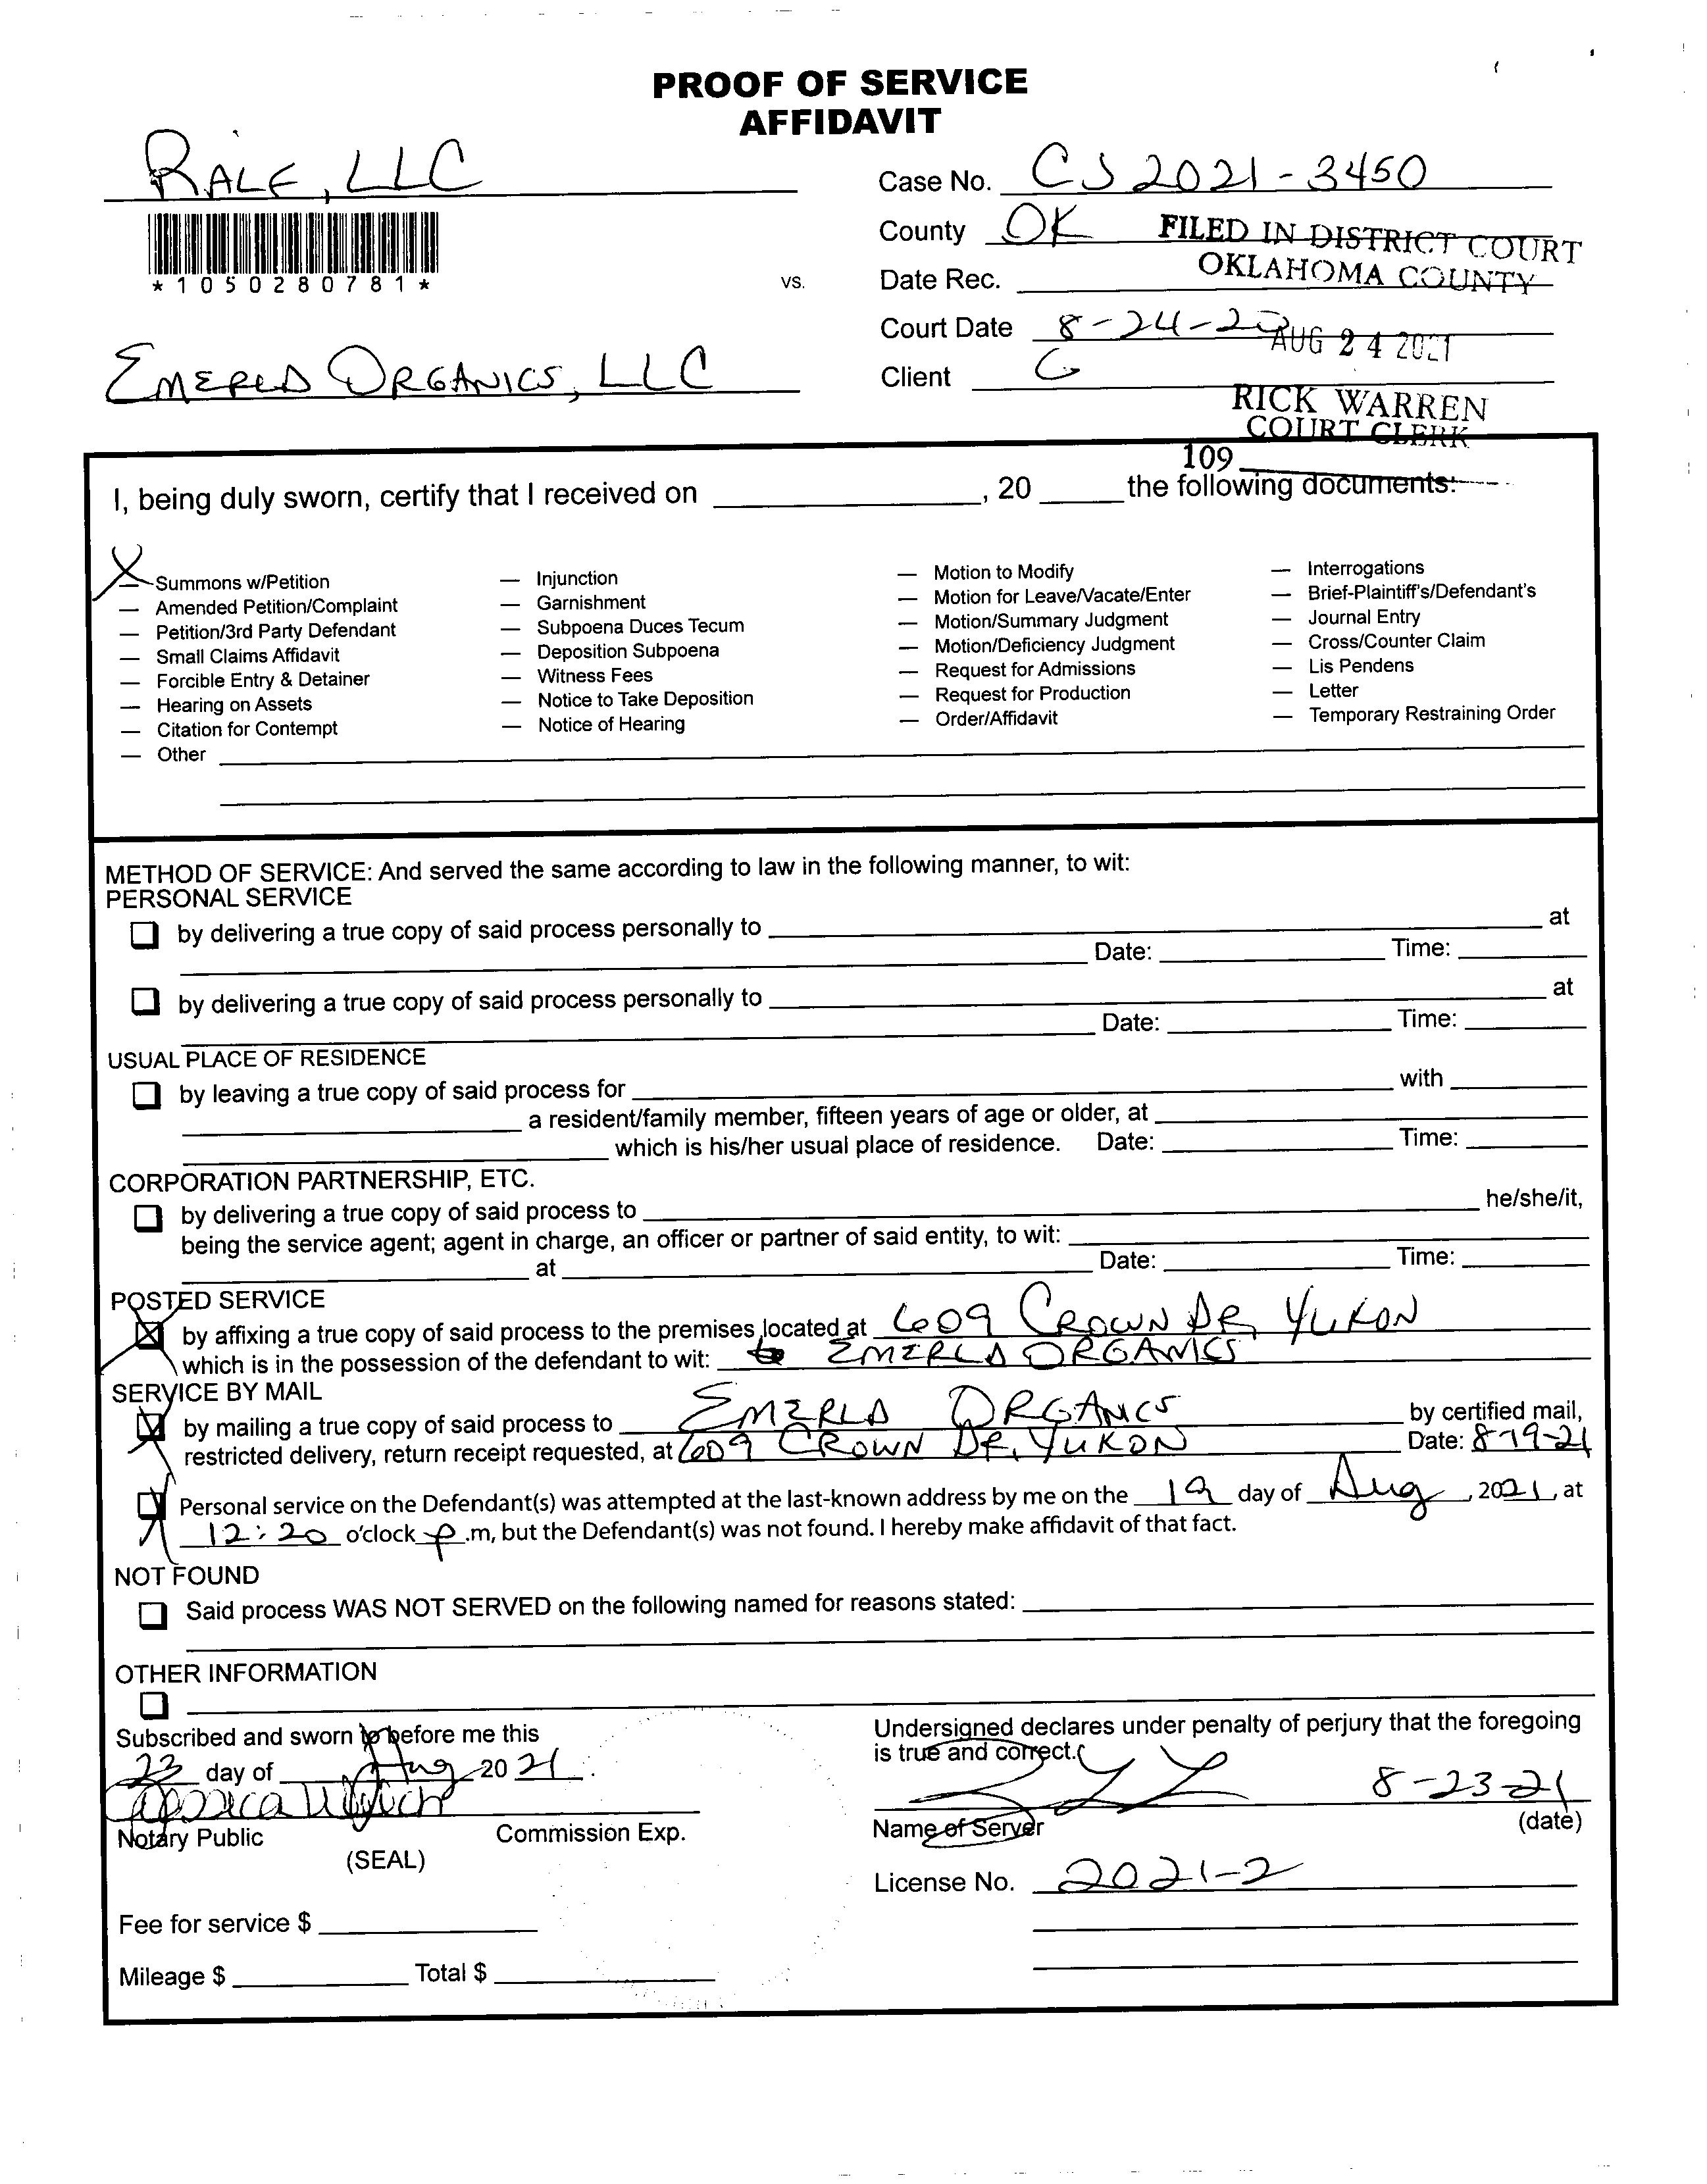 PROOF OF SERVICE
AFFIDAVIT
RALE, LLC
Case No. CJ 2021-3450
County OK
FILED IN DISTRICT COURT
OKLAHOMA COUNTY
*1050280781*
vs.
Date Rec.
Court Date 8-24-20
AUG 24 2021
EMERLD ORGANICS, LLC
Client G
RICK WARREN
COURT CLERK
109
I, being duly sworn, certify that I received on , 20 the following documents:
X
— Summons w/Petition
— Amended Petition/Complaint
— Petition/3rd Party Defendant
— Small Claims Affidavit
— Forcible Entry & Detainer
— Hearing on Assets
— Citation for Contempt
— Other
— Injunction
— Garnishment
— Subpoena Duces Tecum
— Deposition Subpoena
— Witness Fees
— Notice to Take Deposition
— Notice of Hearing
— Motion to Modify
— Motion for Leave/Vacate/Enter
— Motion/Summary Judgment
— Motion/Deficiency Judgment
— Request for Admissions
— Request for Production
— Order/Affidavit
— Interrogations
— Brief-Plaintiff's/Defendant's
— Journal Entry
— Cross/Counter Claim
— Lis Pendens
— Letter
— Temporary Restraining Order
METHOD OF SERVICE: And served the same according to law in the following manner, to wit:
PERSONAL SERVICE
by delivering a true copy of said process personally to at
Date: Time:
by delivering a true copy of said process personally to at
Date: Time:
USUAL PLACE OF RESIDENCE
by leaving a true copy of said process for with
a resident/family member, fifteen years of age or older, at
which is his/her usual place of residence. Date: Time:
CORPORATION PARTNERSHIP, ETC.
by delivering a true copy of said process to he/she/it,
being the service agent; agent in charge, an officer or partner of said entity, to wit:
at Date: Time:
POSTED SERVICE
by affixing a true copy of said process to the premises located at 609 CROWN DR, YUKON
which is in the possession of the defendant to wit: EMERLD ORGANICS
SERVICE BY MAIL
by mailing a true copy of said process to EMERLD ORGANICS by certified mail,
restricted delivery, return receipt requested, at 609 CROWN DR, YUKON Date: 8-19-21
Personal service on the Defendant(s) was attempted at the last-known address by me on the 19 day of Aug, 2021, at
12:20 o'clock p.m, but the Defendant(s) was not found. I hereby make affidavit of that fact.
NOT FOUND
Said process WAS NOT SERVED on the following named for reasons stated:
OTHER INFORMATION
Subscribed and sworn to before me this
23 day of Aug 2021.
Jessica
Notary Public Commission Exp.
(SEAL)
Fee for service $
Mileage $ Total $
Undersigned declares under penalty of perjury that the foregoing
is true and correct.
8-23-21
Name of Server (date)
License No. 2021-2